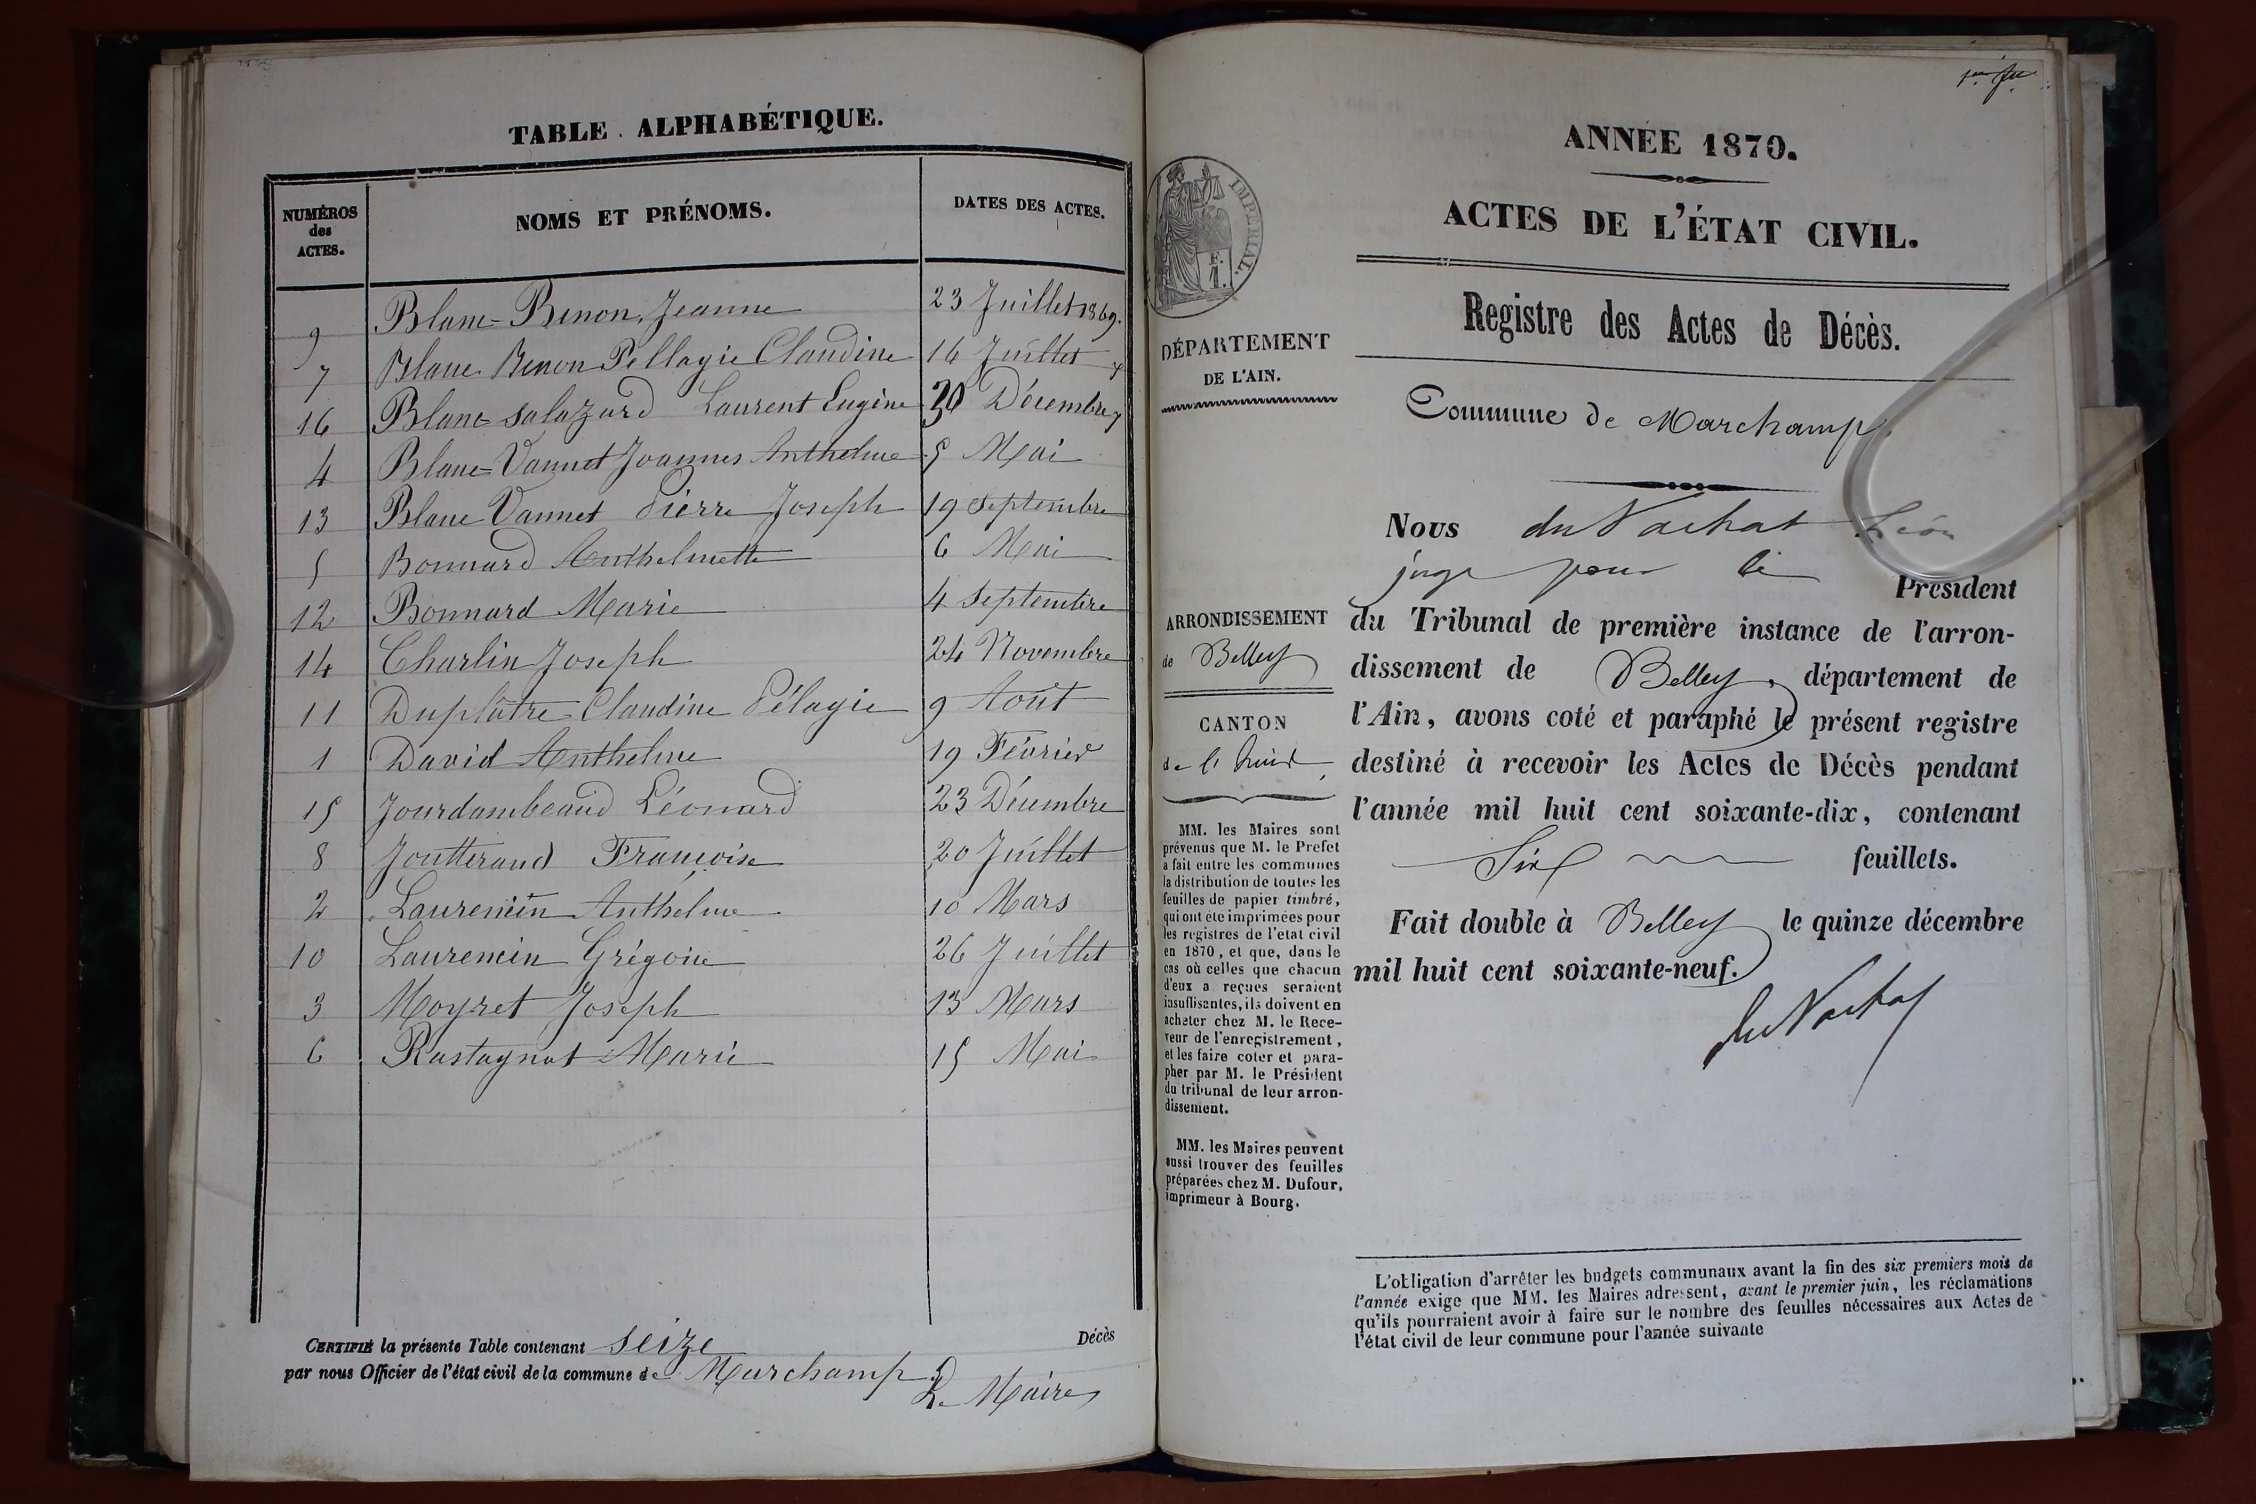 TABLE ALPHABÉTIQUE.
NUMÉROS
des
ACTES.
NOMS ET PRÉNOMS.
DATES DES ACTES.
9 Blanc-Benon, Jeanne 23 Juillet 1869.
7 Blanc Benon Pellagie Claudine 16 Juillet
16 Blanc salazard Laurent Eugène 30 Décembre
4 Blanc-Vannet Joannes Anthelme 5 Mai
13 Blanc Vannet Pierre Joseph 19 Septembre
5 Bonnard Anthelmette 6 Mai
12 Bonnard Marie 4 Septembre
14 Charlin Joseph 24 Novembre
11 Duplâtre Claudine Pélagie 9 Août
1 David Anthelme 19 Février
15 Jourdambeaud Léonard 23 Décembre
8 Joutterand Françoise 20 Juillet
2 Laurencin Anthelme 10 Mars
10 Laurencin Grégoire 26 Juillet
3 Moyret Joseph 13 Mars
6 Rastagnat Marie 15 Mai
CERTIFIÉ la présente Table contenant seize Décès
par nous Officier de l'état civil de la commune de Marchamp
Le Maire
ANNÉE 1870.
ACTES DE L'ÉTAT CIVIL.
Registre des Actes de Décès.
Commune de Marchamp
IMPERIAL.
F.
1.
DÉPARTEMENT
DE L'AIN.
ARRONDISSEMENT
de Belley
CANTON
MM. les Maires sont
prévenus que M. le Prefet
a fait entre les communes
la distribution de toutes les
feuilles de papier timbré,
qui ont été imprimées pour
les registres de l'etat civil
en 1870, et que, dans le
cas où celles que chacun
d'eux a reçues seraient
insuffisantes, ils doivent en
acheter chez M. le Rece-
veur de l'enregistrement,
et les faire coter et para-
pher par M. le Président
du tribunal de leur arron-
dissement.
MM. les Maires peuvent
aussi trouver des feuilles
préparées chez M. Dufour,
imprimeur à Bourg.
Nous du Vachat Léon
juge pour le Président
du Tribunal de première instance de l'arron-
dissement de Belley, département de
l'Ain, avons coté et paraphé le présent registre
destiné à recevoir les Actes de Décès pendant
l'année mil huit cent soixante-dix, contenant
Six feuillets.
Fait double à Belley le quinze décembre
mil huit cent soixante-neuf.
du Vachat
L'obligation d'arrêter les budgets communaux avant la fin des six premiers mois de
l'année exige que MM. les Maires adressent, avant le premier juin, les réclamations
qu'ils pourraient avoir à faire sur le nombre des feuilles nécessaires aux Actes de
l'état civil de leur commune pour l'année suivante